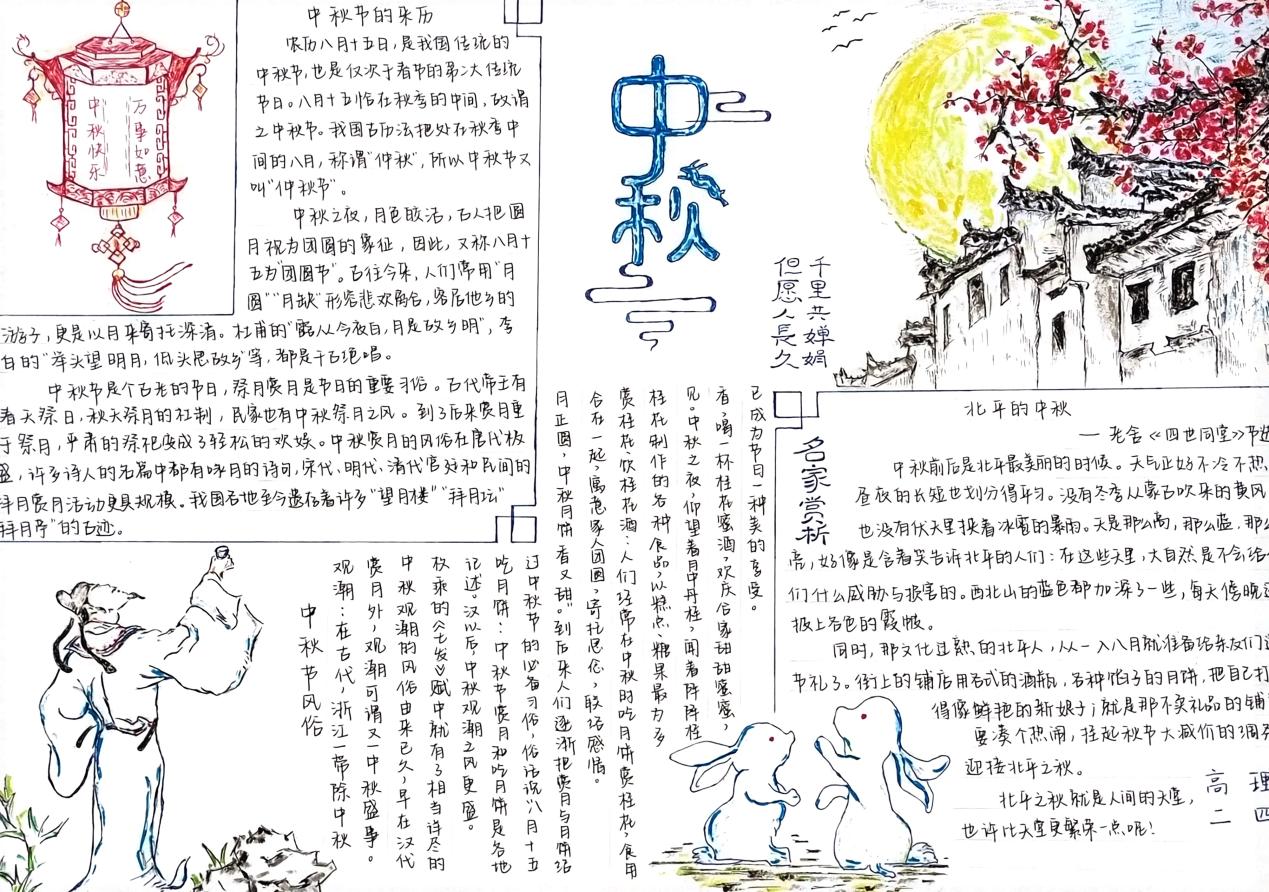 中秋快乐
万事如意
中秋节的来历
农历八月十五日,是我国传统的
中秋节,也是仅次于春节的第二大传统
节日。八月十五恰在秋季的中间,故谓
之中秋节。我国古历法把处在秋季中
间的八月,称谓"仲秋",所以中秋节又
叫"仲秋节"。
中秋之夜,月色皎洁,古人把圆
月视为团圆的象征,因此,又称八月十
五为"团圆节"。古往今来,人们常用"月
圆""月缺"形容悲欢离合,客居他乡的
游子,更是以月来寄托深情。杜甫的"露从今夜白,月是故乡明",李
白的"举头望明月,低头思故乡"等,都是千古绝唱。
中秋节是个古老的节日,祭月赏月是节日的重要习俗。古代帝王有
春天祭日,秋天祭月的社制,民家也有中秋祭月之风。到了后来赏月重
于祭月,严肃的祭祀变成了轻松的欢娱。中秋赏月的风俗在唐代极
盛,许多诗人的名篇中都有咏月的诗句,宋代、明代、清代宫廷和民间的
拜月赏月活动更具规模。我国各地至今遗存着许多"望月楼""拜月坛"
拜月亭"的古迹。
中秋
千里共婵娟
但愿人長久
中秋节风俗
观潮:在古代,浙江一带除中秋
赏月外,观潮可谓又一中秋盛事。
中秋观潮的风俗由来已久,早在汉代
枚乘的《七发》赋中就有了相当详尽的
记述。汉以后,中秋观潮之风更盛。
吃月饼:中秋节赏月和吃月饼是各地
过中秋节的必备习俗,俗话说:八月十五
月正圆,中秋月饼香又甜。"到后来人们逐渐把赏月与月饼结
合在一起,寓意家人团圆,寄托思念,联络感情。
赏桂花、饮桂花酒:人们经常在中秋时吃月饼赏桂花,食用
桂花制作的各种食品,以糕点、糖果最为多
见。中秋之夜,仰望着月中丹桂,闻着阵阵桂
香,喝一杯桂花蜜酒,欢庆合家甜甜蜜蜜,
已成为节日一种美的享受。
名家赏析
北平的中秋
——老舍《四世同堂》节选
中秋前后是北平最美丽的时候。天气正好不冷不热,
昼夜的长短也划分得平匀。没有冬季从蒙古吹来的黄风
也没有伏天里挟着冰雹的暴雨。天是那么高,那么蓝,那么
亮,好像是含着笑告诉北平的人们:在这些天里,大自然是不会给
们什么威胁与损害的。西北山的蓝色都加深了一些,每天傍晚还
披上各色的霞帔。
同时,那文化过熟的北平人,从一入八月就准备给亲友们
节礼了。街上的铺店用各式的酒瓶,各种馅子的月饼,把自己打
得像鲜艳的新娘子;就是那不卖礼品的铺
要凑个热闹,挂起秋节大减价的
迎接北平之秋。
北平之秋就是人间的天堂,
也许比天堂更繁荣一点呢!
高二
理四